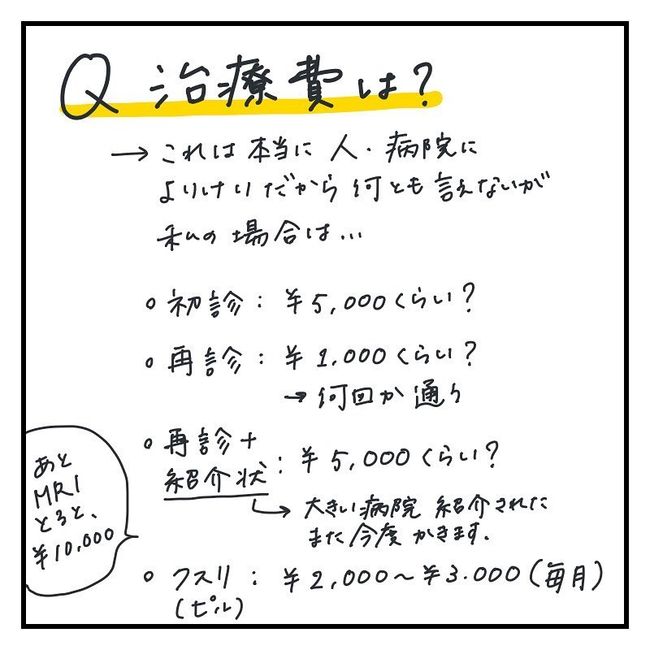 Q 治療費は?
→ これは 本当に 人・病院に
よりけりだから 何とも 言えないが
私の 場合は...
○ 初診: ¥5,000くらい?
○ 再診: ¥1,000くらい?
→ 何回か 通う
○ 再診+
紹介状: ¥5,000くらい?
→ 大きい病院 紹介された
また今度 かきます.
○ クスリ: ¥2,000〜¥3.000(毎月)
(ピル)
あと
MRI
とると、
¥10,000